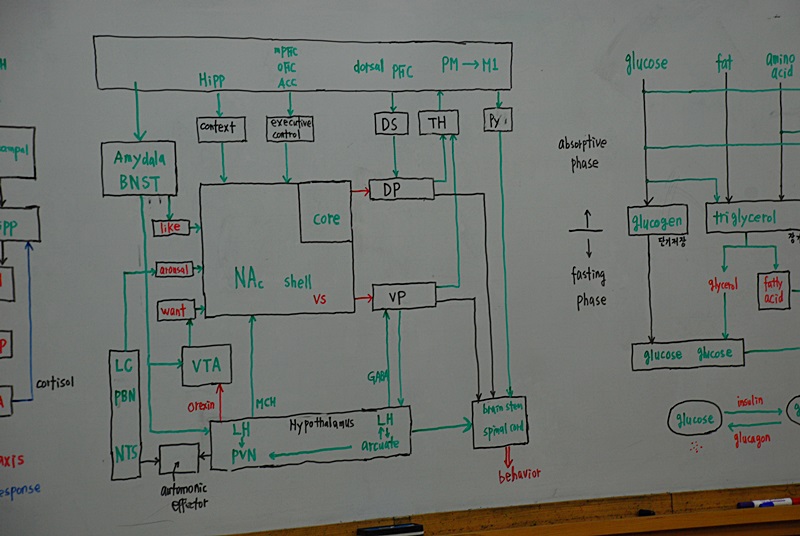 H
mPFC
OFC
ACC
HiPP
dorsal PFC
PM → M1
context
executive control
DS
TH
Py
Amydala
BNST
like
arousal
want
core
NAc shell
VS
DP
VP
LC
PBN
NTS
VTA
orexin
MCH
GABA
Hypothalamus
LH
PVN
LH
arcuate
autonomic
effector
brain stem
spinal cord
behavior
cortisol
axis
esponse
glucose
fat
amino
acid
absorptive
phase
fasting
phase
glucogen
단기저장
triglycerol
장기
glycerol
fatty
acid
glucose glucose
glucose
insulin
glucagon